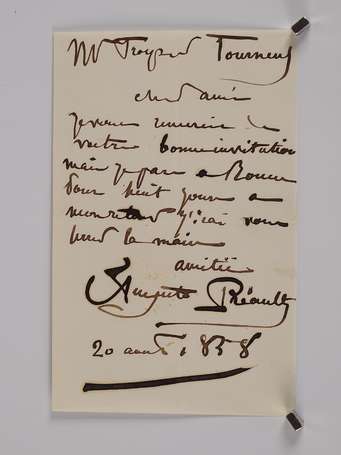 Mr Troyon Tourneux
cher ami
je vous remercie de
votre bonne invitation
mais je pars a Rouen
pour huit jours a
mon retour j'irai vous
la main
amitiés
Auguste Préault
20 aout 1858